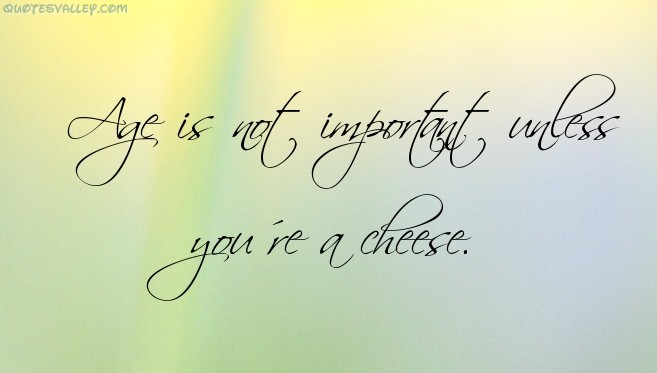 QUOTESVALLEY.COM
Age is not important unless
you're a cheese.